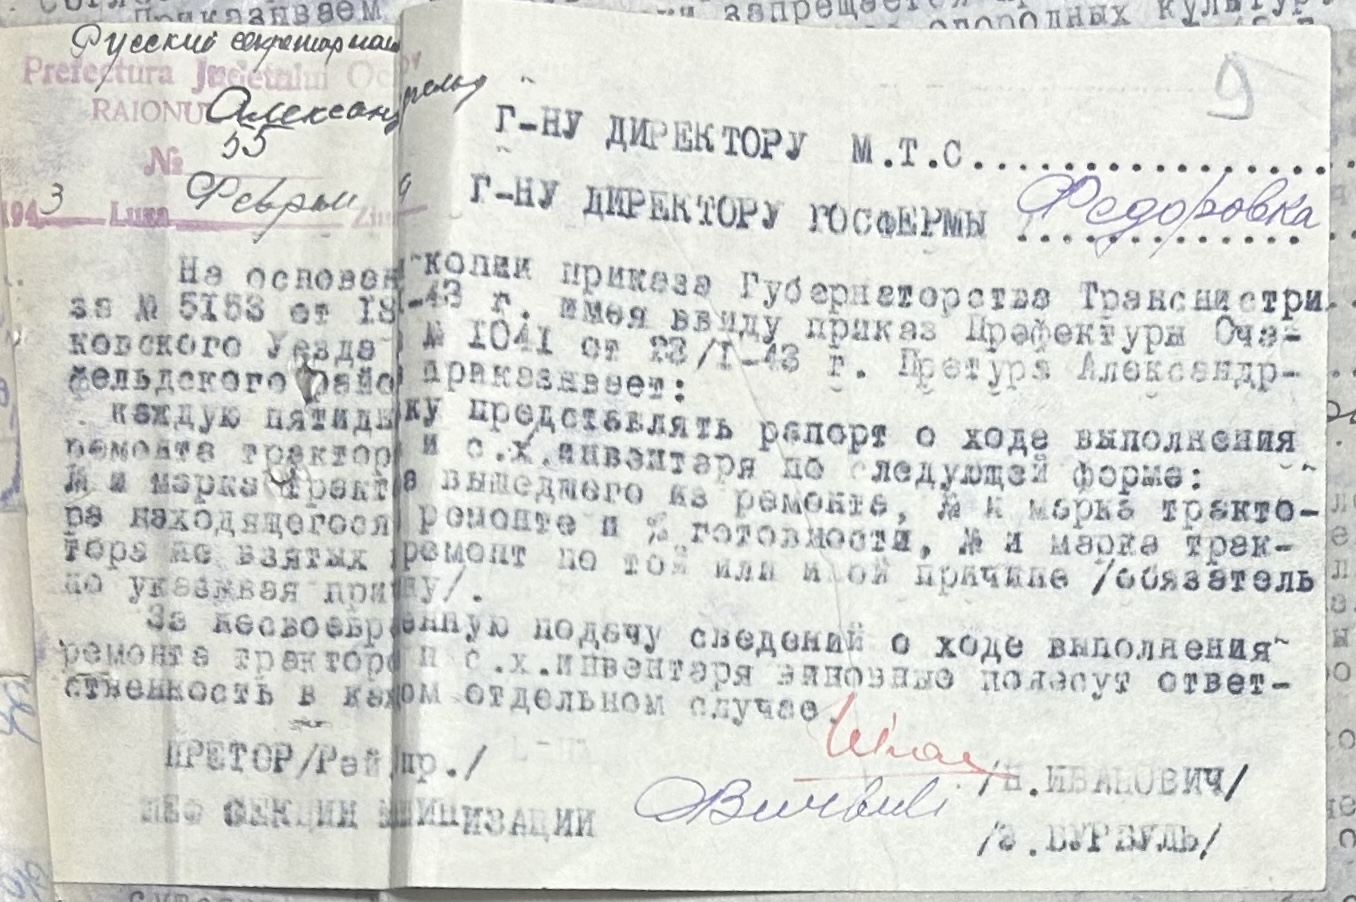 Русский секретариат
Prefectura Județului Oceacov
RAIONUL Александрфельд
№ 55
1943 Luna Феврал Ziua 9
9
Г-НУ ДИРЕКТОРУ М.Т.С..................
Г-НУ ДИРЕКТОРУ ГОСФЕРМЫ Федоровка
На основан копии приказа Губернаторства Транснистри
за № 5153 от 18-43 г. имея ввиду приказ Префектуры Оча-
ковского Уезда № 1041 от 23/I-43 г. Претура Александр-
фельдского райо приказывает:
каждую пятидн ку представлять рапорт о ходе выполнения
ремонта трактор и с.х.инвентаря по следующей форме:
№ и марка тракт а вышедшего из ремонта, № и марка тракто-
ра находящегося ремонте и % готовности, № и марка трак-
тора не взятых ремонт по той или иной причине /обязатель
но указывая при ну/.
За несвоевр енную подачу сведений о ходе выполнения
ремонта тракторо и с.х.инвентаря виновные понесут ответ-
ственность в каж ом отдельном случае.
ПРЕТОР/Рай пр./ /Н.ИВАНОВИЧ/
ШЕФ СЕКЦИИ МШИНИЗАЦИИ
/З.БУРБУЛЬ/